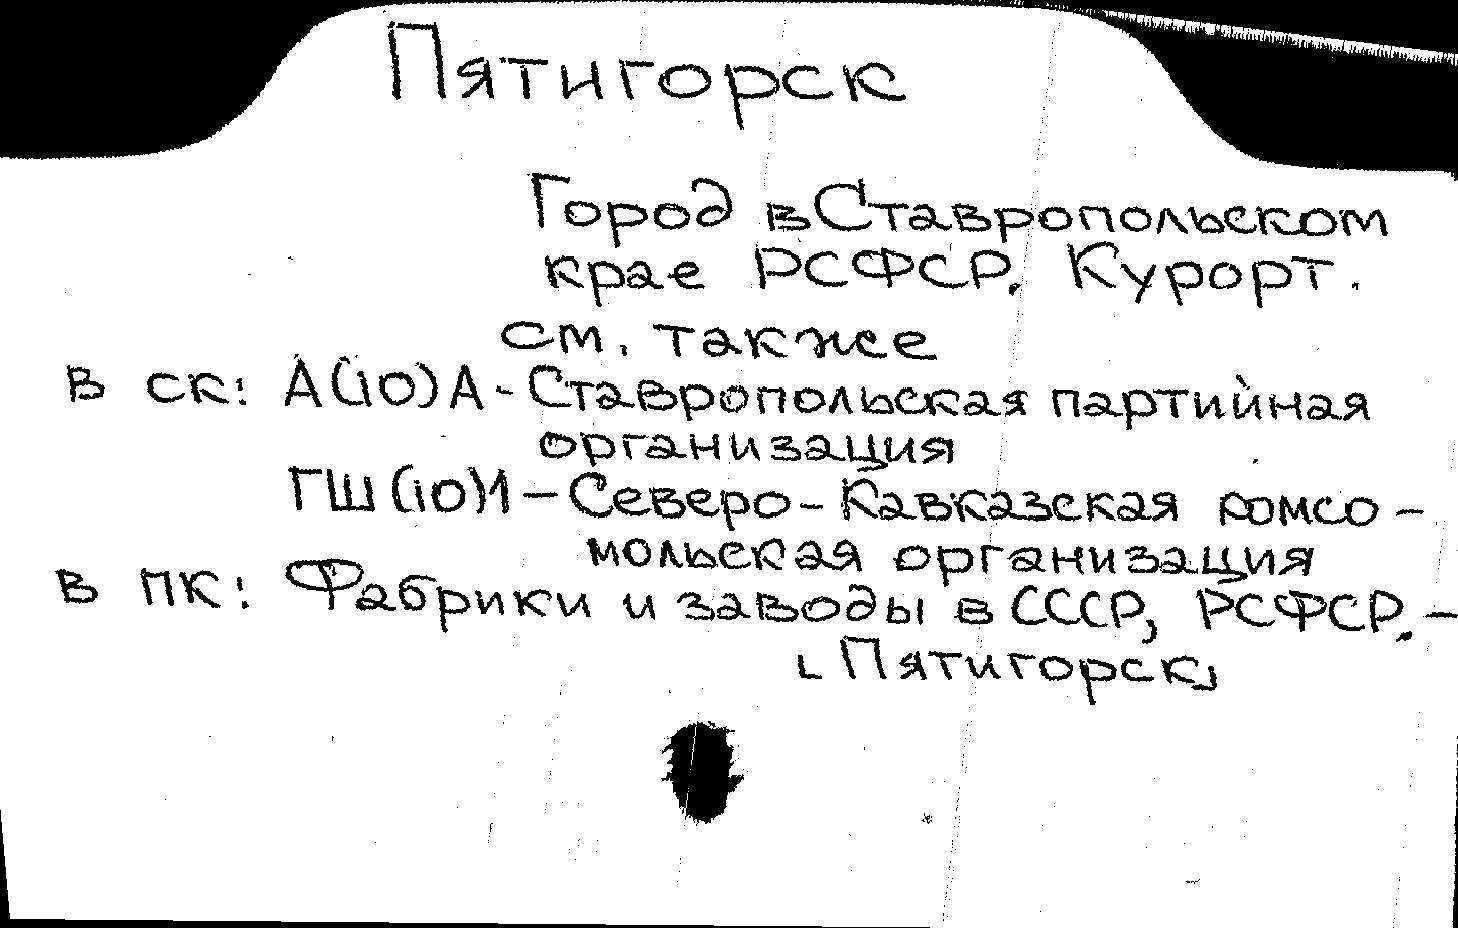 Пятигорск
Город в Ставропольском
крае РСФСР. Курорт.
см. также
в СК: А(10)А - Ставропольская партийная
организация
ГШ(10)1 - Северо-Кавказская комсо-
мольская организация
в ПК: Фабрики и заводы в СССР, РСФСР. -
⌞Пятигорск⌟